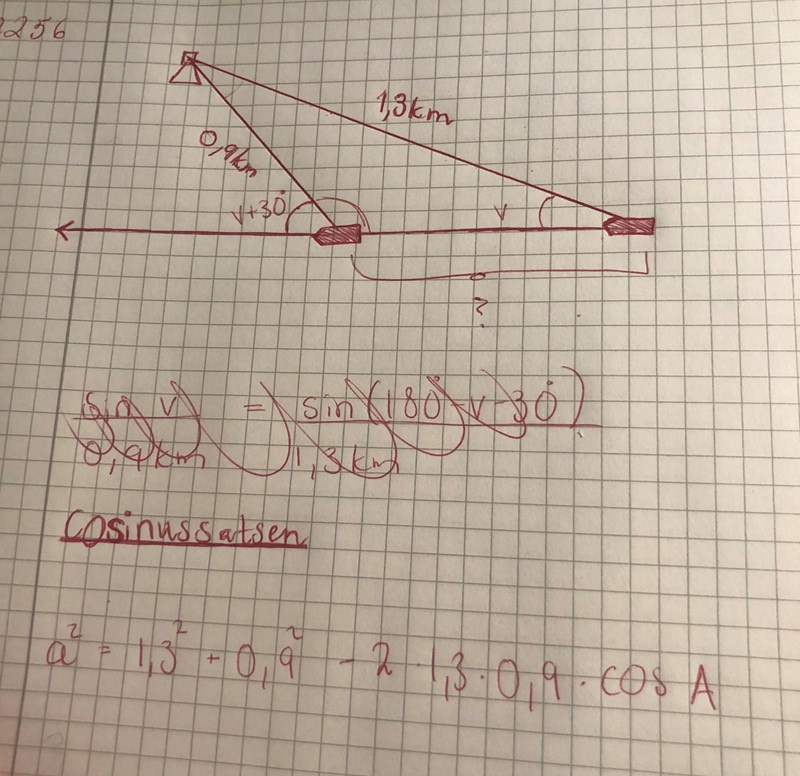 256
1,3km
0,9km
v+30°
v
?
sin v = sin(180°-v-30°)
0,9km 1,3km
Cosinussatsen
a² = 1,3² + 0,9² - 2 · 1,3 · 0,9 · cos A